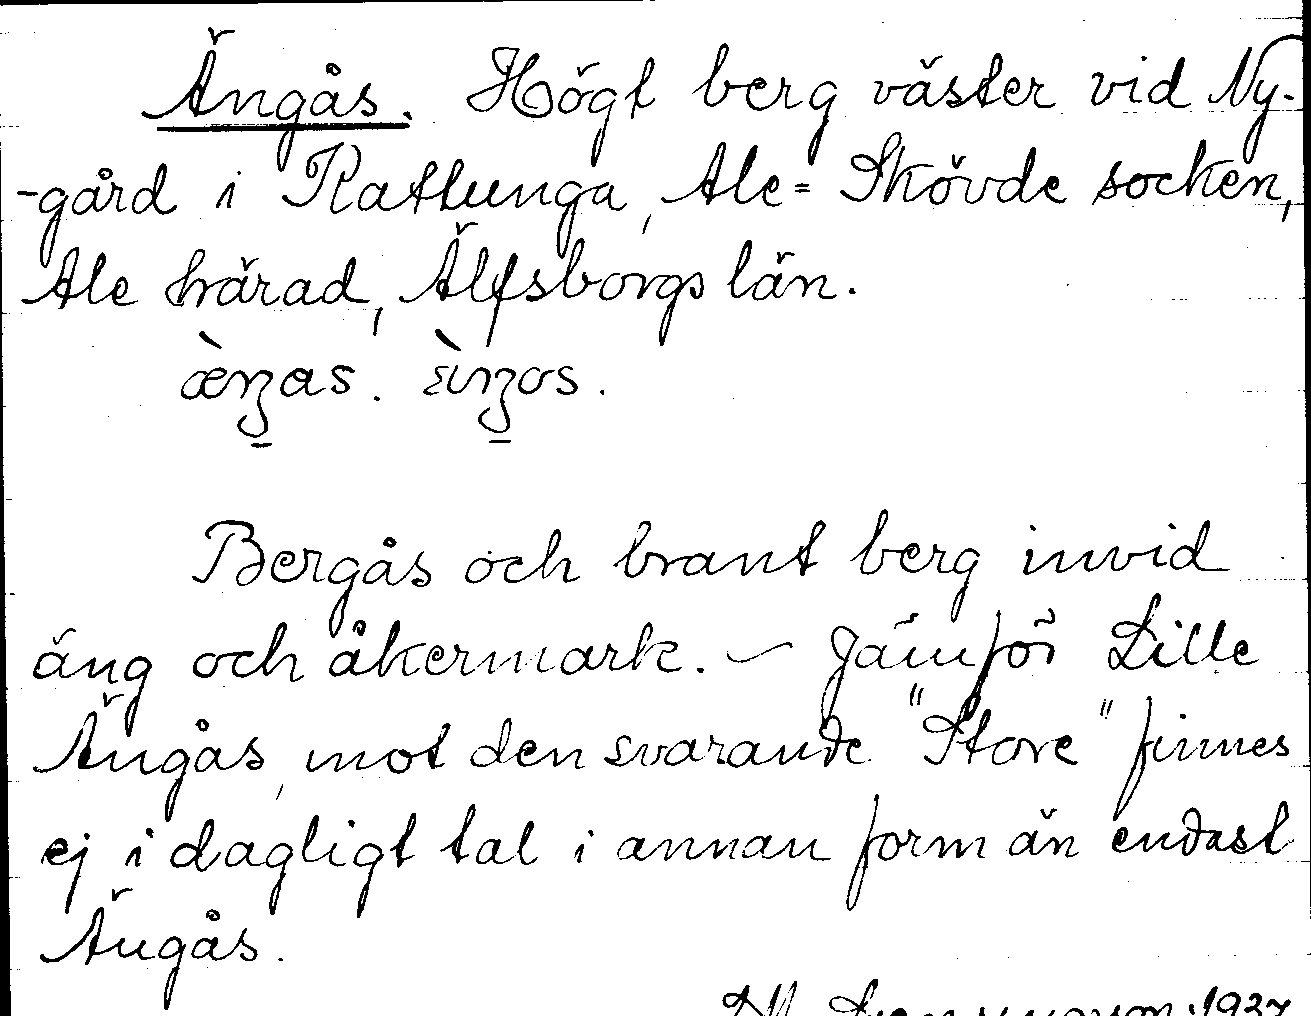 Ängås. Högt berg väster vid Ny-
-gård i Rattunga, Ale-Skövde socken,
Ale härad, Älfsborgs län.
Bergås och brant berg invid
äng och åkermark. – Jämför Lille
Ängås, mot den svarande "Store" finnes
ej i dagligt tal i annan form än endast
Ängås.
1937